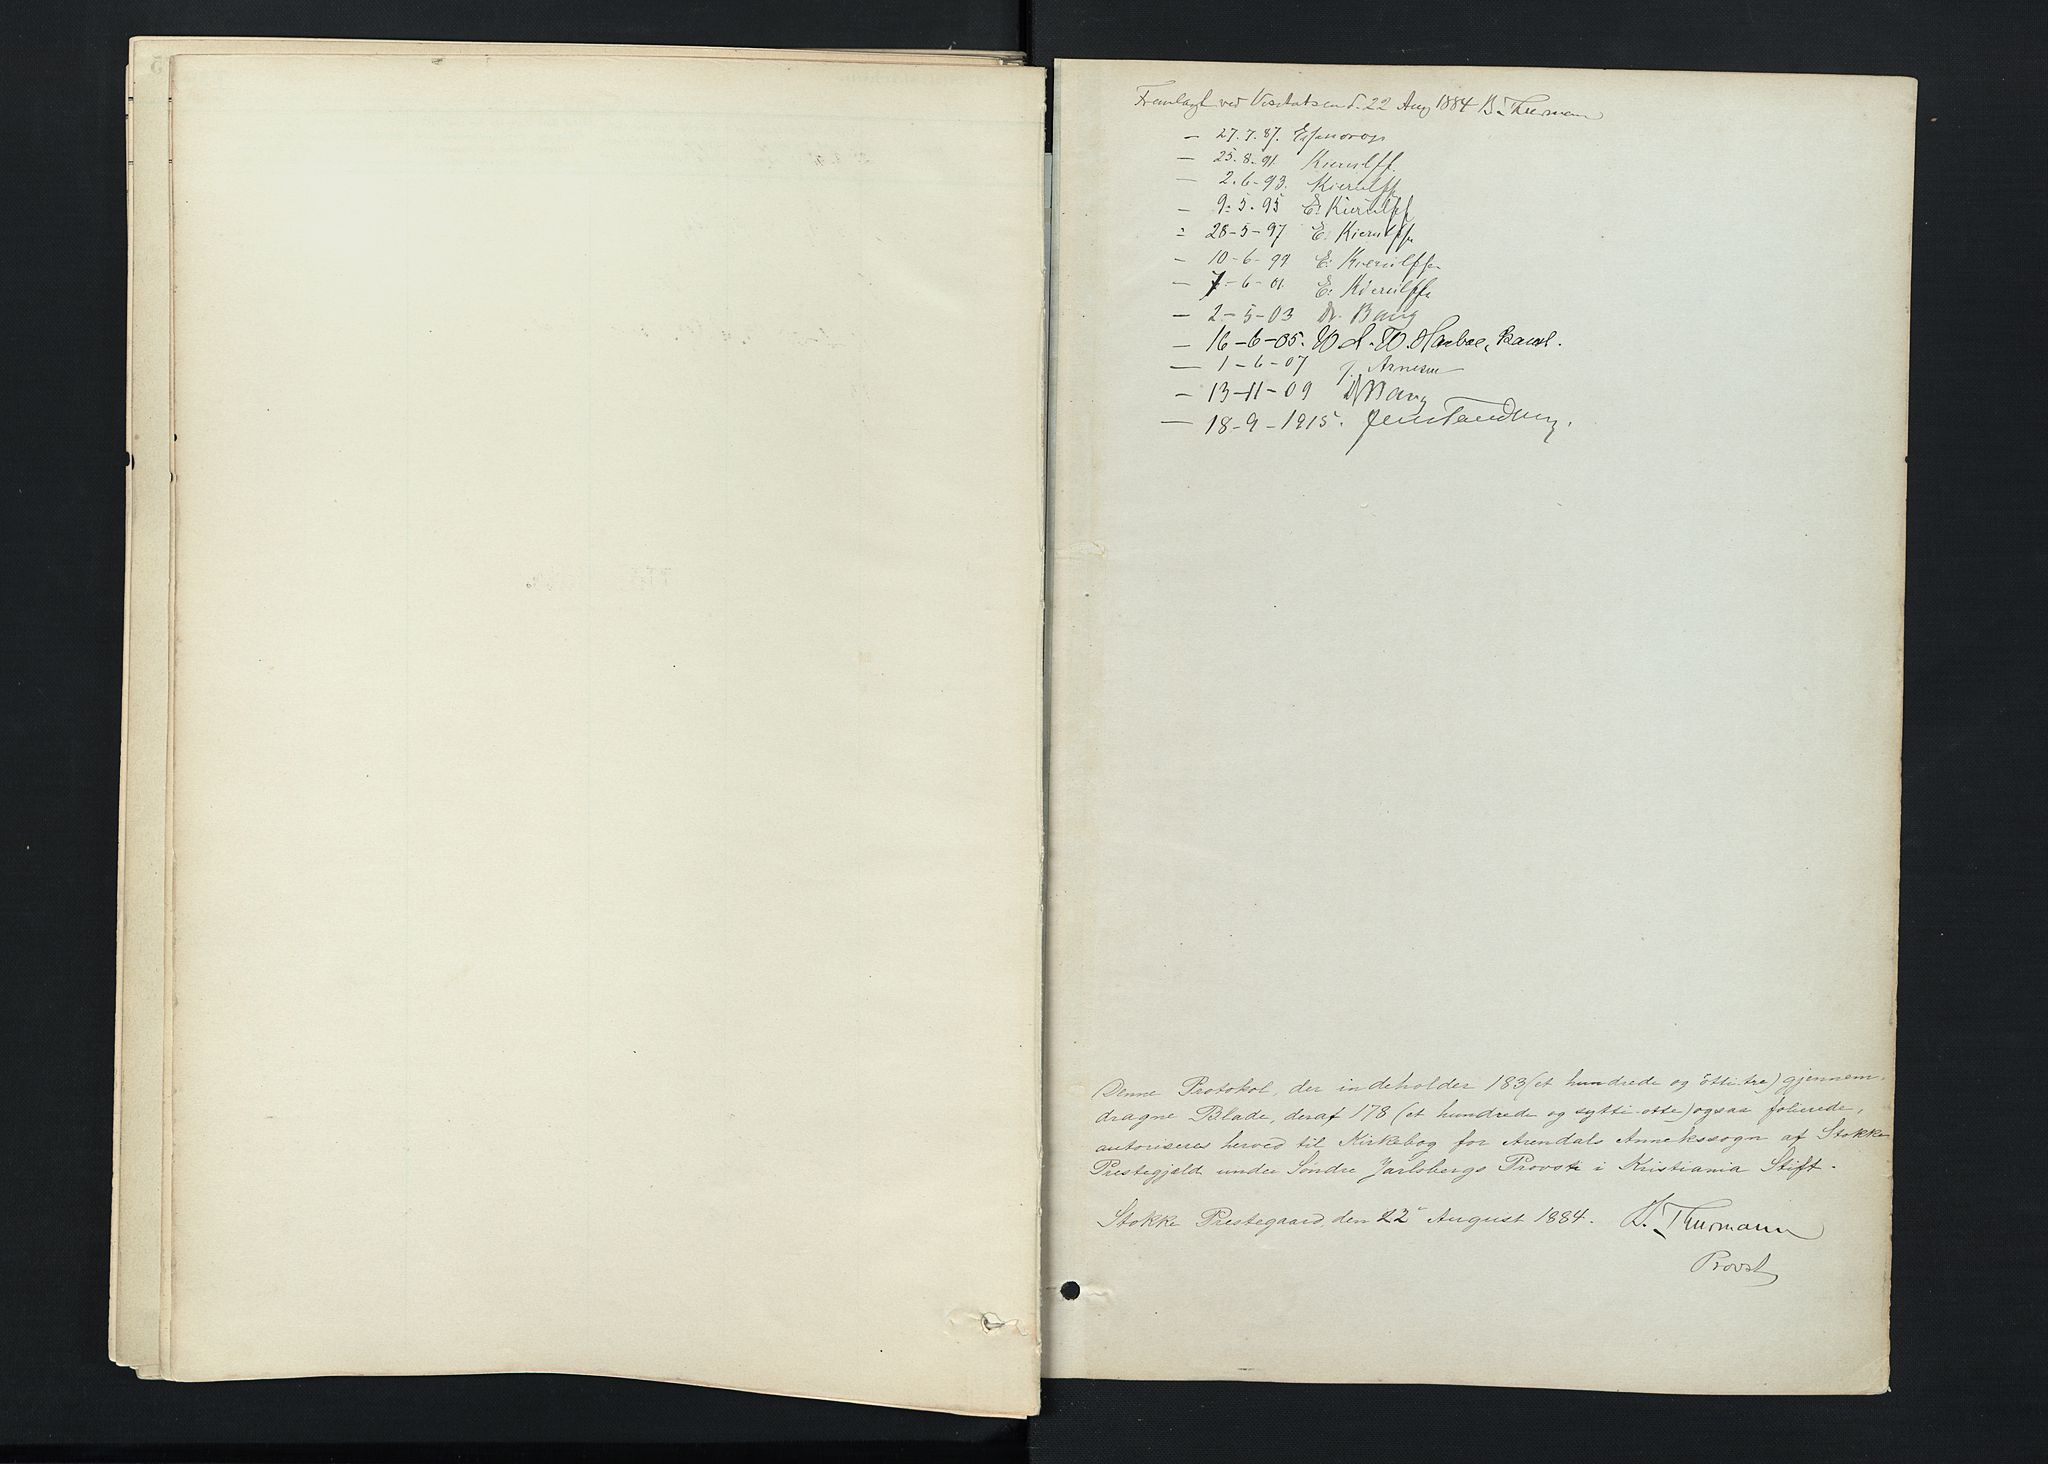 Fremlagt ved Visitatsen d. 22 Aug 1884 B. Thurmann
— 27.7.87.
— 25.8.91 Kierulff.
— 2.6-93. Kierulff
— 9.5.95 E. Kierulff
= 28-5-97 E. Kierulff
- 10-6-99 E. Kierulff
— 7-6-01 E. Kierulff
— 2-5-03 Dr. Bang
— 16-6-05.
— 1-6-07 J. Arnesen
— 13-11-09 Dr Bang
— 18-9-1915. Jens Tandberg.
Denne Protokol, der indeholder 183 (et hundrede og ötti tre) gjennem-
dragne Blade, deraf 178 (et hundrede og sytti-otte) ogsaa folierede,
autoriseres herved til Kirkebog for Arendals Annekssogn af Stokke
Prestegjæld under Söndre Jarlsbergs Provsti i Kristiania Stift.
Stokke Prestegaard, den 22 August 1884. B. Thurmann
Provst